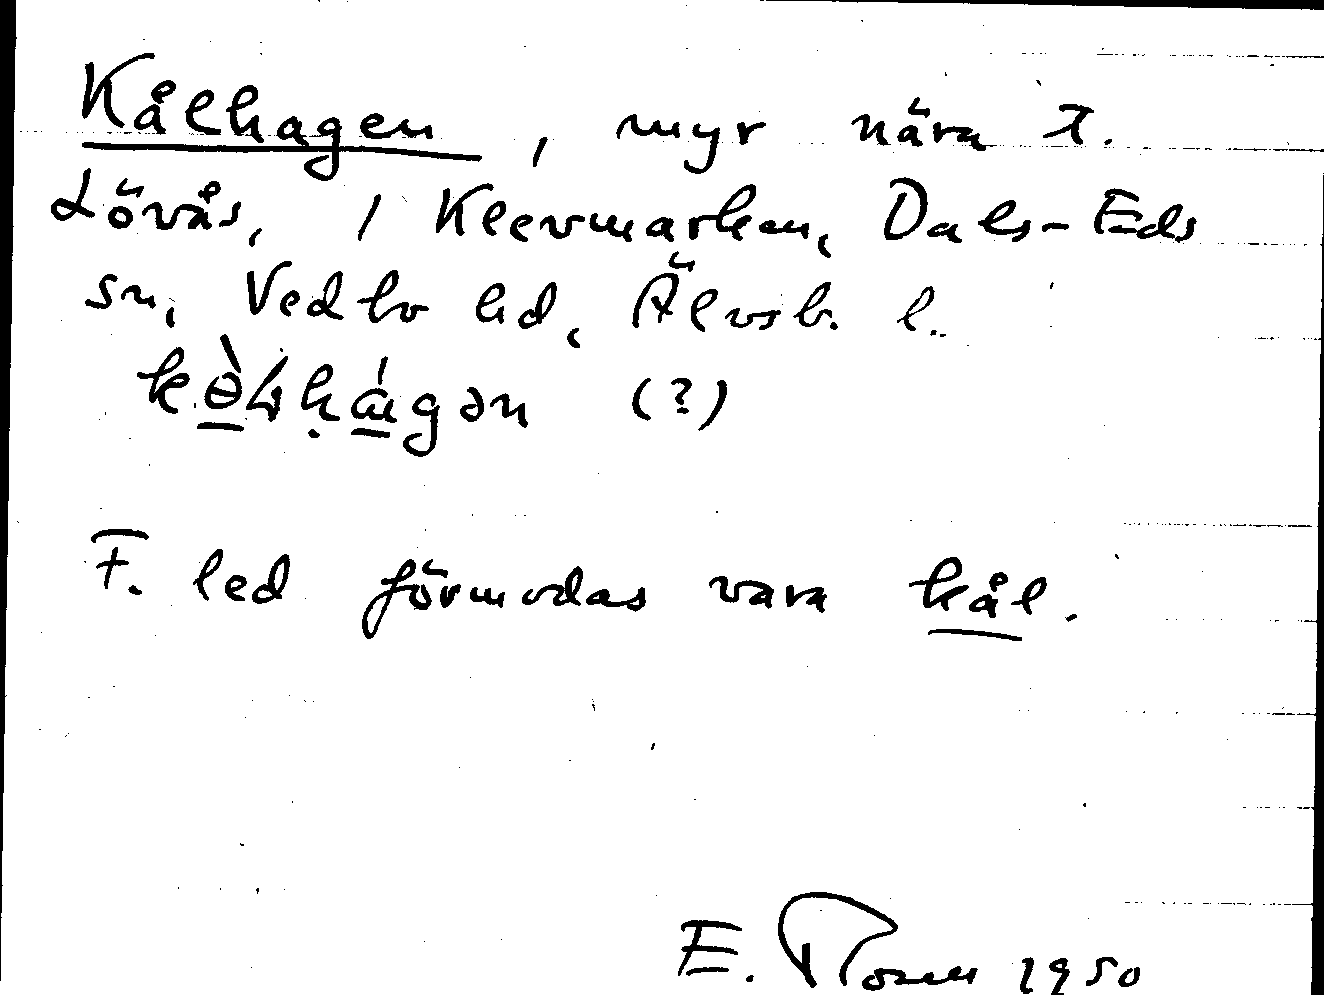 Kålhagen, myr nära t.
Lövås, 1 Klevmarken, Dals-Eds
sn, Vedbo hd, Älvsb. l.
(?)
F. led förmodas vara kål.
E. 1950